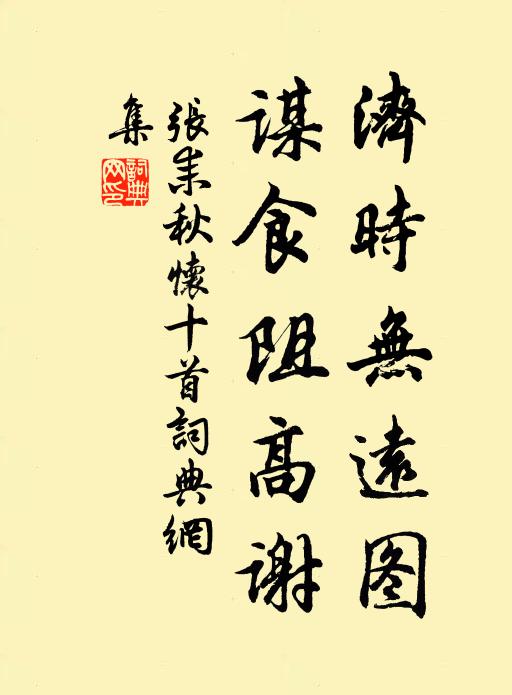 濟時無遠图
謀食阻高谢
張耒秋懷十首詞典網
集
詞典
网印